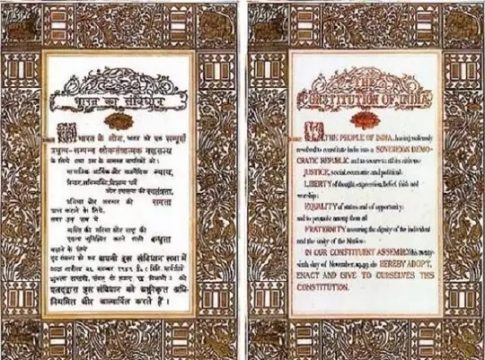 भारत का संविधान
हम, भारत के लोग, भारत को एक सम्पूर्ण
प्रभुत्व-सम्पन्न लोकतंत्रात्मक गणराज्य
के लिये, तथा उस के समस्त नागरिकों को:
सामाजिक, आर्थिक और राजनैतिक न्याय,
विचार, अभिव्यक्ति, विश्वास, धर्म
और उपासना की स्वतंत्रता,
प्रतिष्ठा और अवसर की समता
प्राप्त कराने के लिये,
तथा उन सब में
व्यक्ति की गरिमा और राष्ट्र की
एकता सुनिश्चित करने वाली बन्धुता
बढ़ाने के लिये
दृढ़ संकल्प हो कर अपनी इस संविधान सभा में
आज तारीख २६ नवम्बर १९४९ ई० (मिति मार्गशीर्ष
शुक्ला सप्तमी, सम्वत् दो हजार छह विक्रमी) को
एतद्द्वारा इस संविधान को अङ्गीकृत, अधि-
नियमित और आत्मार्पित करते हैं।
THE
CONSTITUTION OF INDIA
WE, THE PEOPLE OF INDIA, having solemnly
resolved to constitute India into a SOVEREIGN DEMO-
CRATIC REPUBLIC and to secure to all its citizens:
JUSTICE, social, economic and political;
LIBERTY of thought, expression, belief, faith and
worship;
EQUALITY of status and of opportunity;
and to promote among them all
FRATERNITY assuring the dignity of the individual
and the unity of the Nation;
IN OUR CONSTITUENT ASSEMBLY this twenty-
sixth day of November, 1949, do HEREBY ADOPT,
ENACT AND GIVE TO OURSELVES THIS
CONSTITUTION.